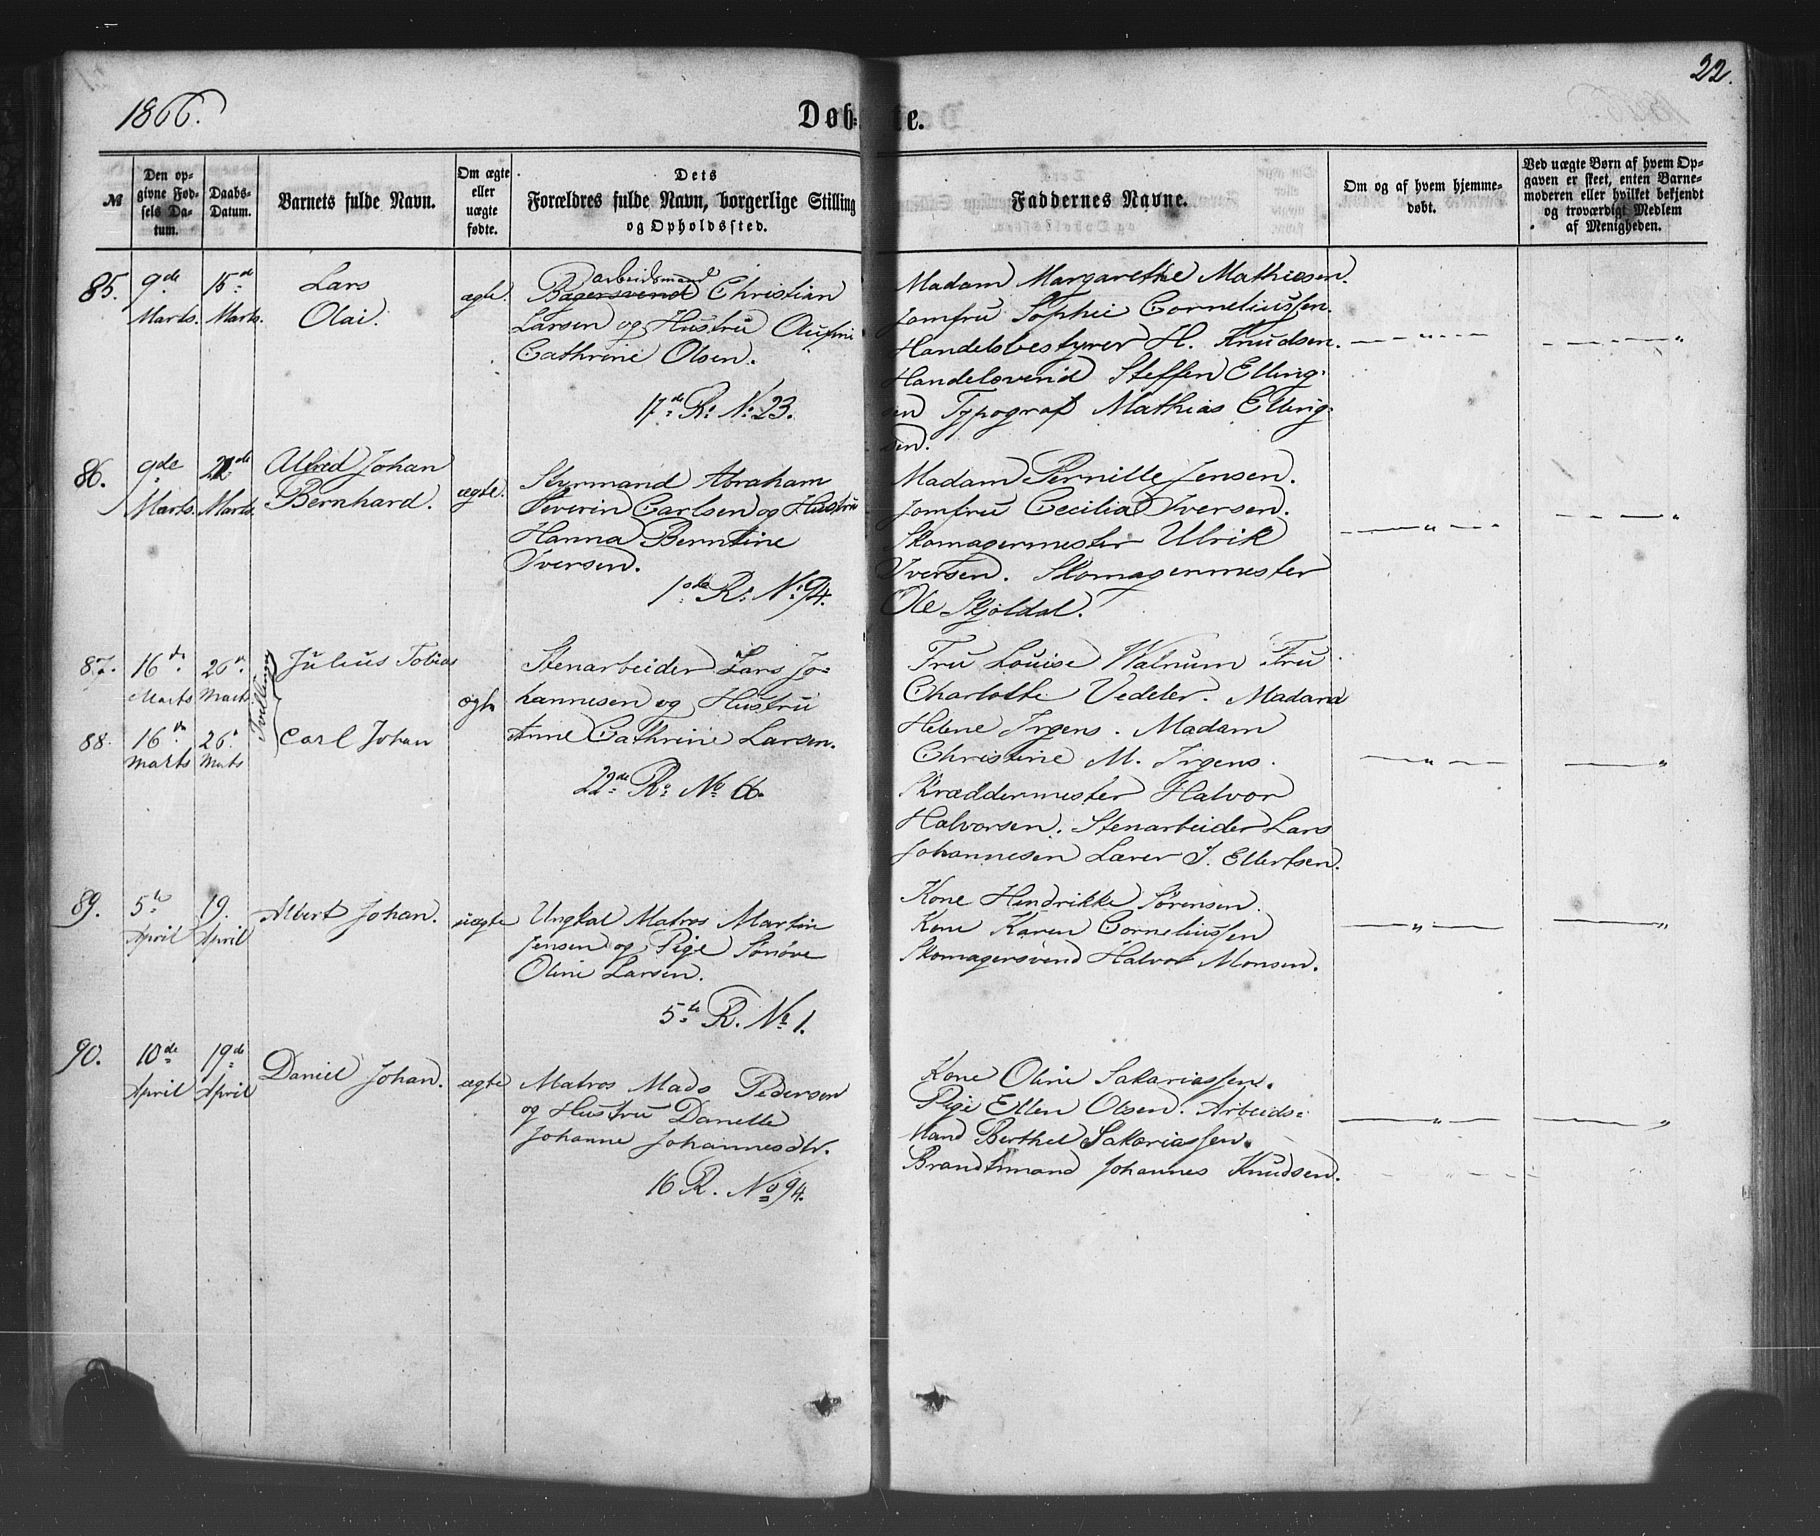 1866.
Døbte.
22.
№
Den opgivne Fødsels Datum.
Daabs-Datum.
Barnets fulde Navn.
Om ægte eller uægte fødte.
Dets Forældres fulde Navn, borgerlige Stilling og Opholdssted.
Faddernes Navne.
Om og af hvem hjemmedøbt.
Ved uægte Børn af hvem Opgaven er skeet, enten Barnemoderen eller hvilket bekjendt og troværdigt Medlem af Menigheden.
85.
9de Marts.
15de Marts.
Lars
Olai.
ægte.
arbeidsmand
Bagersvend Christian
Larsen og Hustru Olufine
Cathrine Olsen.
17de R: No 23.
Madam Margarethe Mathiesen.
Jomfru Sophie Corneliussen.
Handelsbestyrer H. Knudsen.
Handelsvend Steffen Elling-
sen Typograf Mathias Elling-
sen.
86.
9de Marts.
Marts.
Alfred Johan
Bernhard.
ægte.
Styrmand Abraham
Severin Carlsen og Hustru
Hanna Berntine
Iversen.
1ste R: No 94.
Madam Pernille Jensen.
Jomfru Cecilia Iversen.
Skomagermester Ulrik
Iversen. Skomagermester
Ole Skjoldal.
87.
16de Marts
26de Marts
Tvillinger
Julius Tobias
88.
16de Marts
26. Marts
Carl Johan
ægte
Stenarbeider Lars Jo-
hannesen og Hustru
Anne Cathrine Larsen.
22de R: No 66.
Fru Louise Walnum Fru
Charlotte Vedeler. Madam
Helene Irgens. Madam
Christine M. Irgens.
Skræddermester Halvor
Halvorsen. Stenarbeider Lars
Johannesen Lærer J. Ellertsen.
89.
5te April
19. April
Albert Johan.
uægte
Ungkal Matros Martin
Jensen og Pige Sønøve
Oline Larsen.
5te R. No 1.
Kone Hendrikke Sørensen.
Kone Karen Corneliussen
Skomagersvend Halvor Monsen.
90.
10de April
19de April
Daniel Johan.
ægte
Matros Mads Pedersen
og Hustru Danelle
Johanne Johannesdtr.
16 R. No 94.
Kone Oline Sakariassen.
Pige Ellen Olsen. Arbeids-
mand Berthel Sakariassen.
Brandtmand Johannes Knudsen.